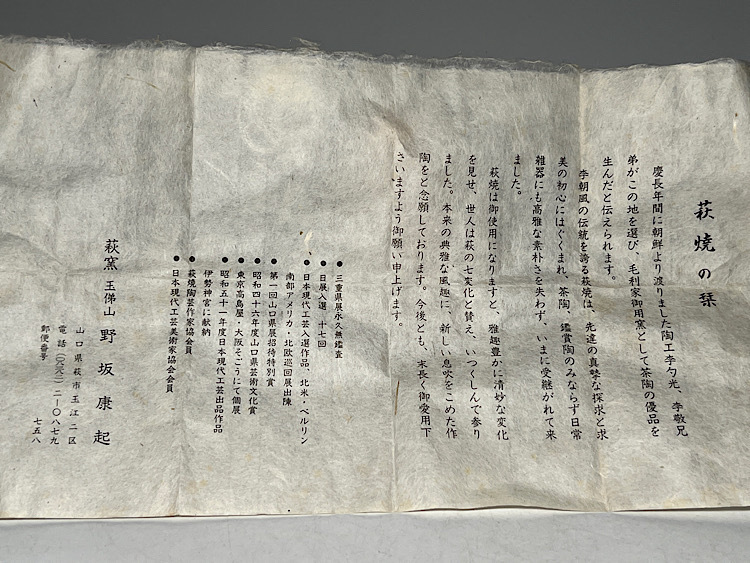 萩焼の栞
慶長年間に朝鮮より渡りました陶工李勺光、李敬兄
弟がこの地を選び、毛利家御用窯として茶陶の優品を
生んだと伝えられます。
李朝風の伝統を誇る萩焼は、先達の真摯な探求と求
美の初心にはぐくまれ、茶陶、鑑賞陶のみならず日常
雑器にも高雅な素朴さを失わず、いまに受継がれて来
ました。
萩焼は御使用になりますと、雅趣豊かに清妙な変化
を見せ、世人は萩の七変化と賛え、いつくしんで参り
ました。本来の典雅な風趣に、新しい息吹をこめた作
陶をと念願しております。今後とも、末長く御愛用下
さいますよう御願い申上げます。
●三重県展永久無鑑査
●日展入選 十七回
●日本現代工芸入選作品、北米・ベルリン
南部アメリカ・北欧巡回展出陳
●第一回山口県展招待特別賞
●昭和四十六年度山口県芸術文化賞
●東京高島屋・大阪そごうにて個展
●昭和五十一年度日本現代工芸出品作品
伊勢神宮に献納
●萩焼陶芸作家協会会員
●日本現代工芸美術家協会会員
萩窯 玉俤山 野坂康起
山口県萩市玉江二区
電話(〇八三八二)二―〇八七九
郵便番号 七五八